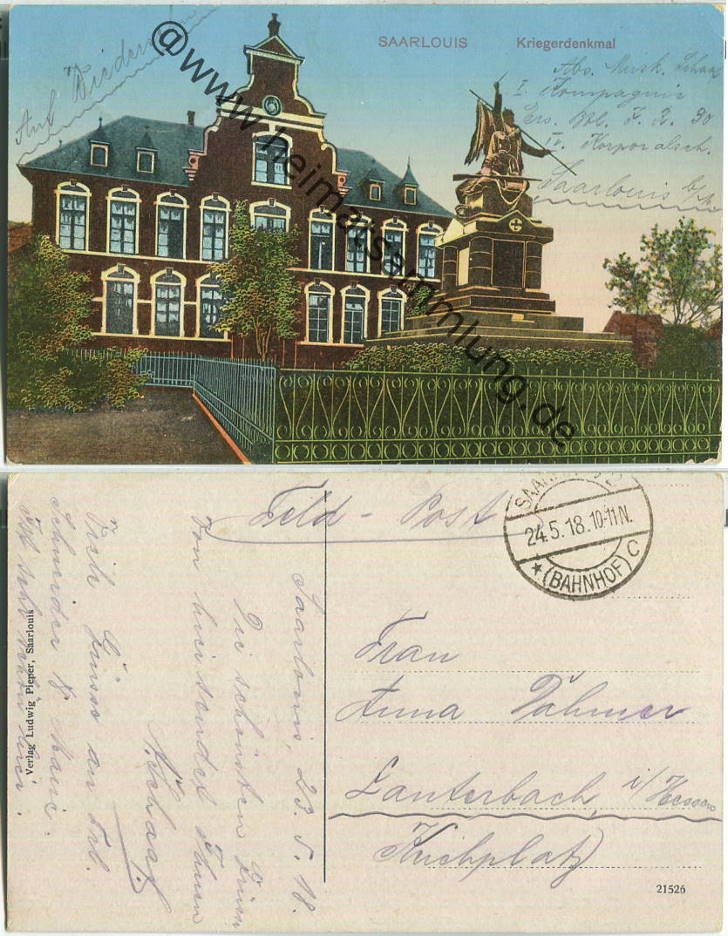 SAARLOUIS Kriegerdenkmal
Auf Wiedersehen
Abs. Musk. Schaaf
I. Kompagnie
Ers. Batl. I. R. 30
IV. Korporalsch.
Saarlouis
@www.heimatsammlung.de
Feld-Post
SAARLOUIS
24.5.18.10-11N.
*(BAHNHOF) C
Saarlouis, 23. 5. 18.
Die schönsten Grüsse
von hier sendet Ihnen
Schaaf.
Viele Grüsse an Frl.
Schneider &
Ist sehr schön hier.
Frau
Anna
Lauterbach, i/Hessen
Kirchplatz
Verlag Ludwig Pieper, Saarlouis
21526